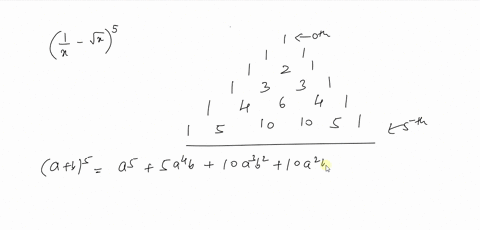 (1/x - √x)^5
1 ← 0th
1 1
1 2 1
1 3 3 1
1 4 6 4 1
1 5 10 10 5 1 ← 5-th
(a+b)^5 = a^5 + 5a^4b + 10a^3b^2 + 10a^2b